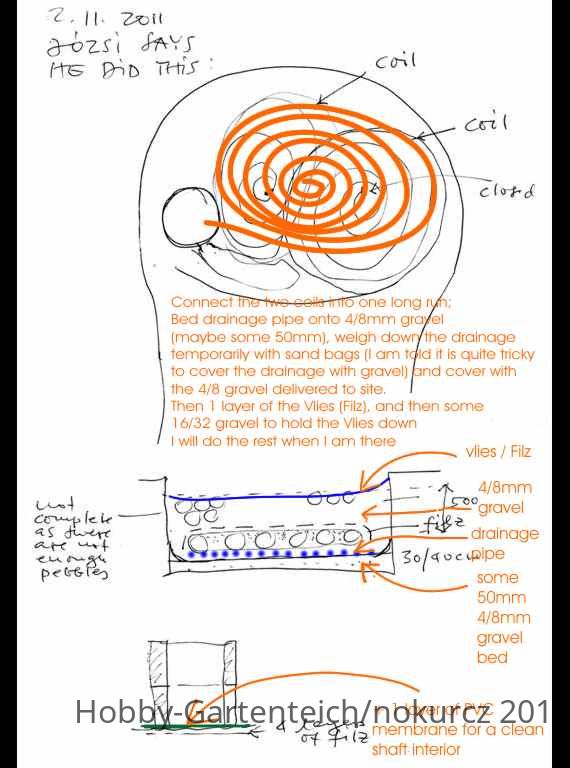 2.11.2011
JÓZSI SAYS
HE DID THIS:
coil
coil
closed
Connect the two coils into one long run;
Bed drainage pipe onto 4/8mm gravel
(maybe some 50mm), weigh down the drainage
temporarily with sand bags (I am told it is quite tricky
to cover the drainage with gravel) and cover with
the 4/8 gravel delivered to site.
Then 1 layer of the Vlies (Filz), and then some
16/32 gravel to hold the Vlies down
I will do the rest when I am there
vlies / Filz
not
complete
as there
are not
enough
pebbles
4/8mm
gravel
500
filz
drainage
pipe
30/40cm
some
50mm
4/8mm
gravel
bed
Hobby-Gartenteich/nokurcz 201
+ 1 layer of PVC
membrane for a clean
shaft interior
layers
of filz